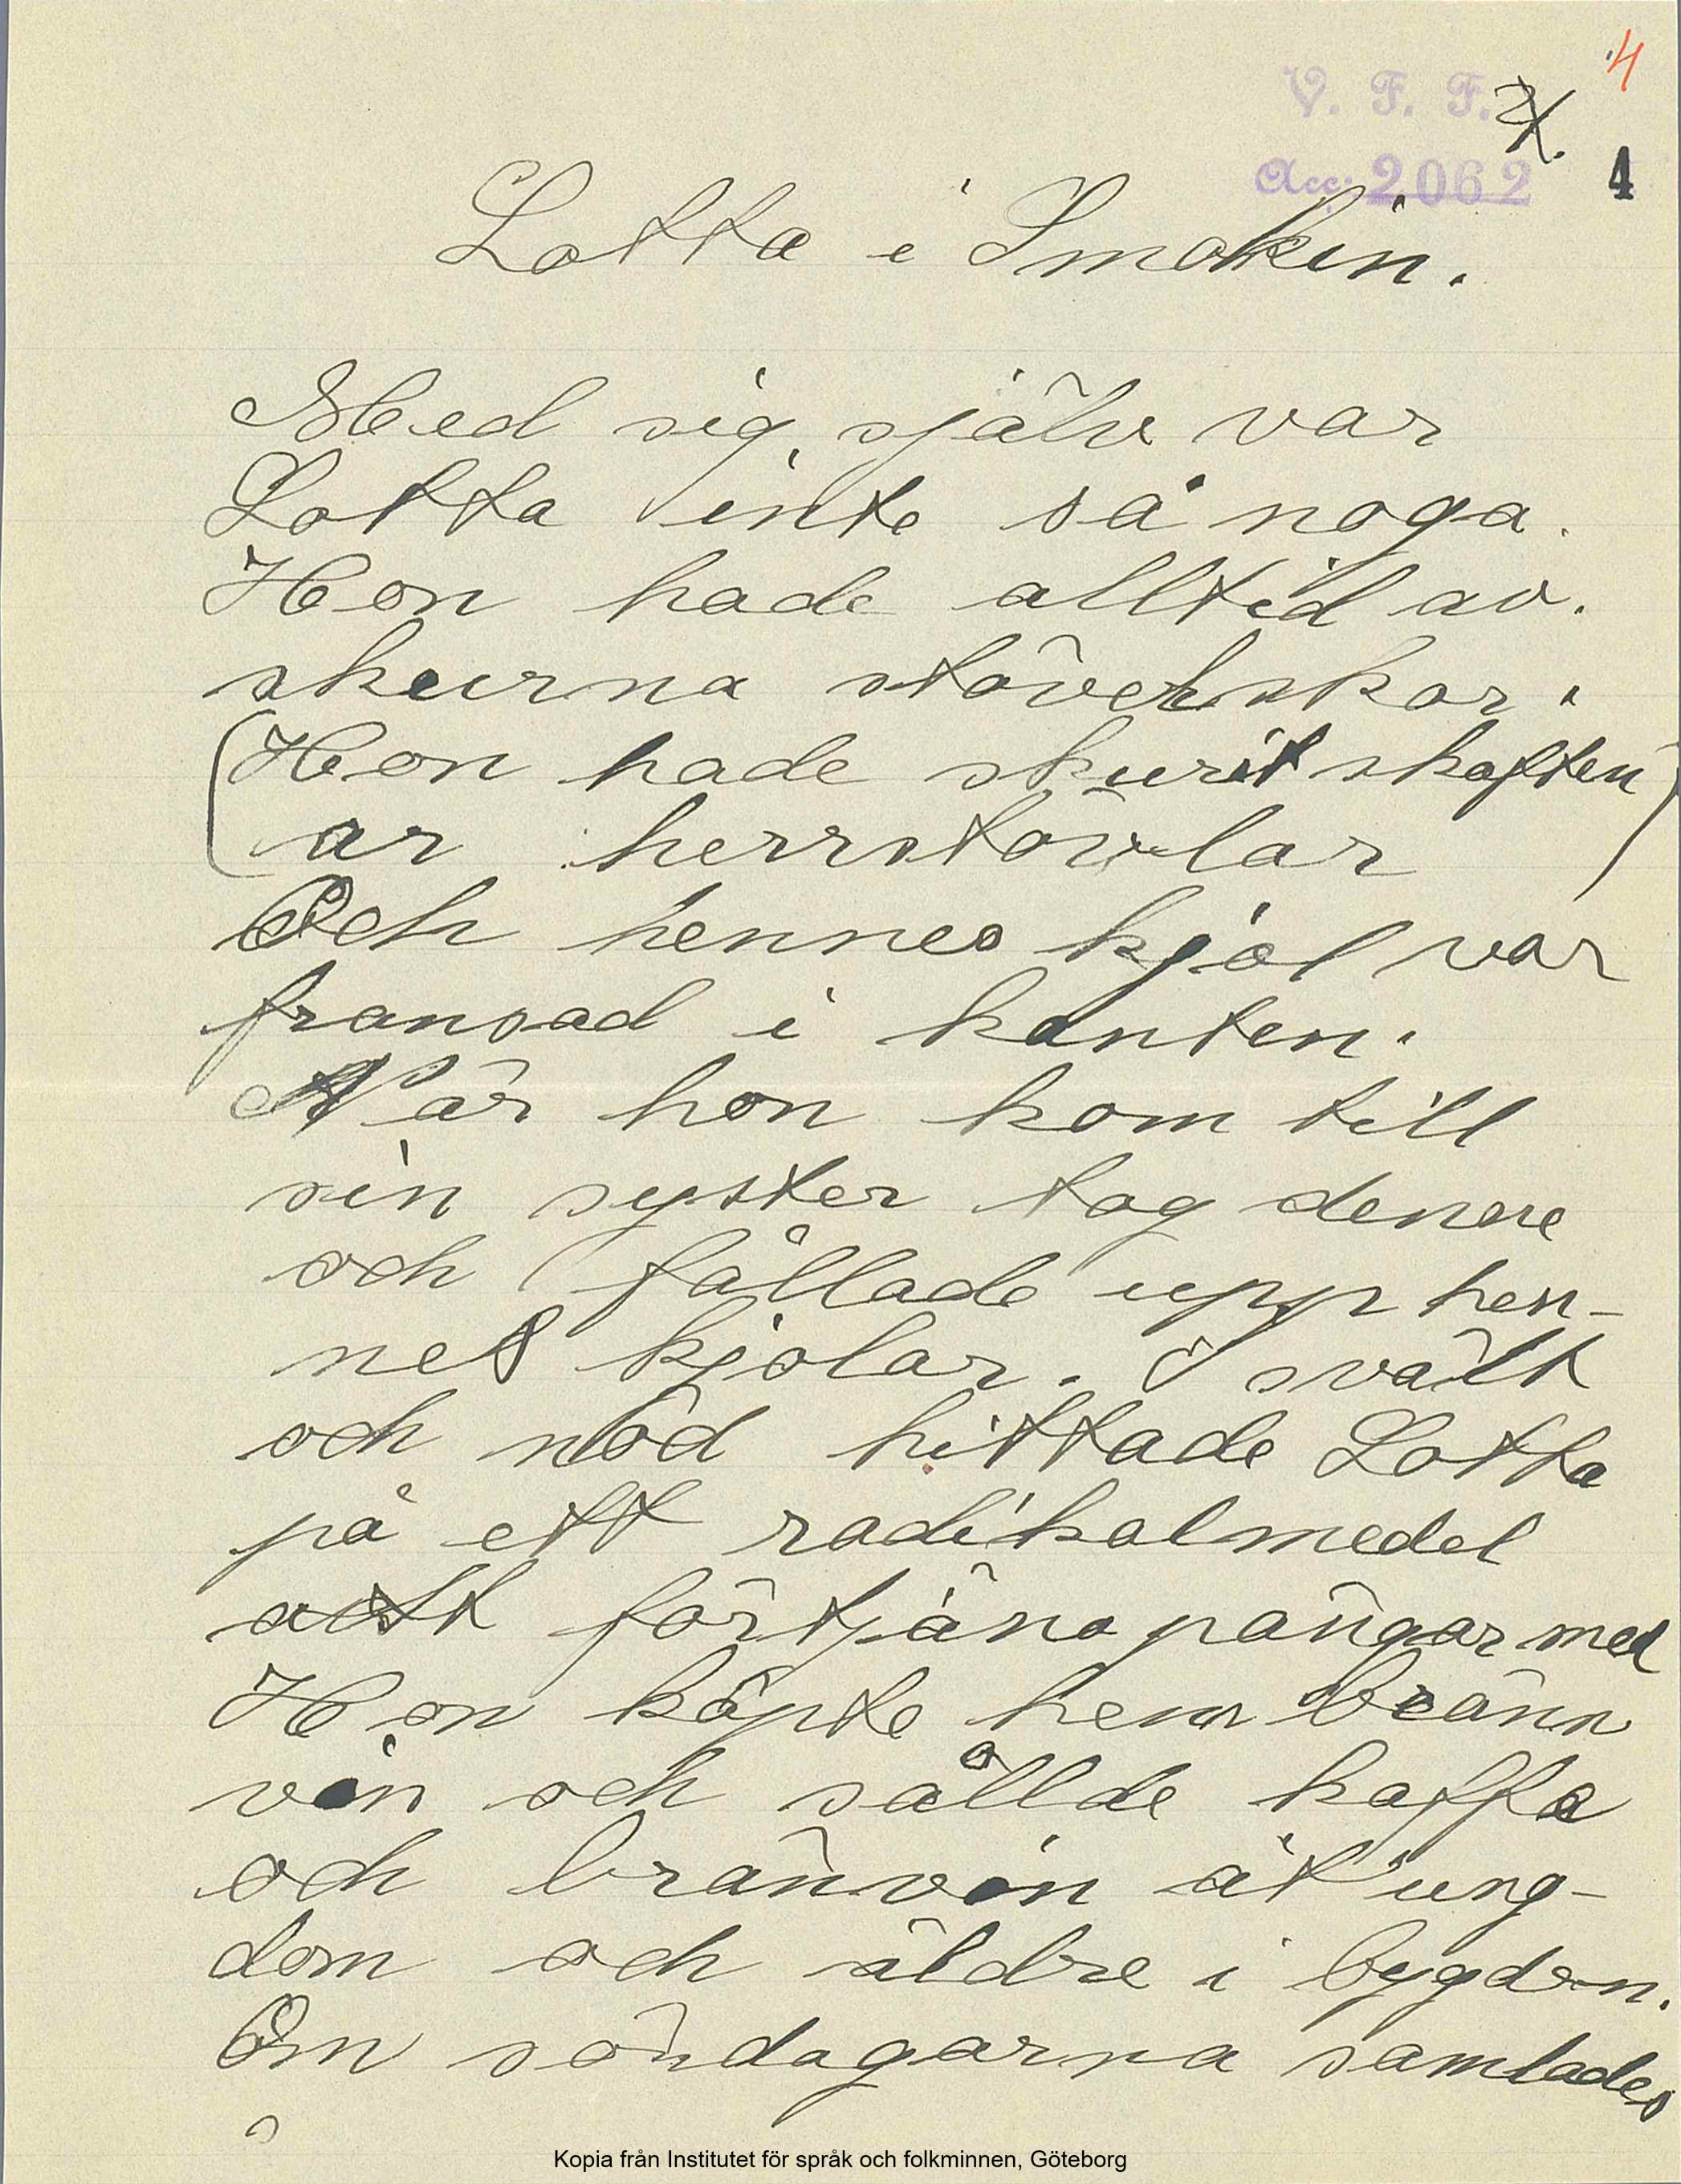 4
V. F. F.
Acc: 2062
4
Lotta i Smokin.
Med sig själv var
Lotta inte så noga.
Hon hade alltid av.
skurna stövelskor.
(Hon hade skurit skaften)
av herrstövlar
Och hennes kjol var
fransad i kanten.
När hon kom till
sin syster tog denne
och fållade upp hen-
nes kjolar. I svält
och nöd hittade Lotta
på ett radikalmedel
att förtjäna pängar med
Hon köpte hem bränn
vin och sållde kaffe
och bränvin åt ung-
dom och äldre i bygden.
Om söndagarna samlades
Kopia från Institutet för språk och folkminnen, Göteborg